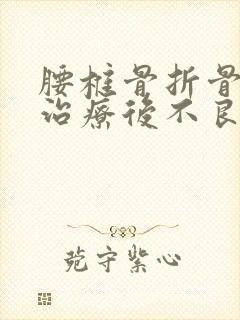 腰椎骨折骨
治療後不良
守紫心